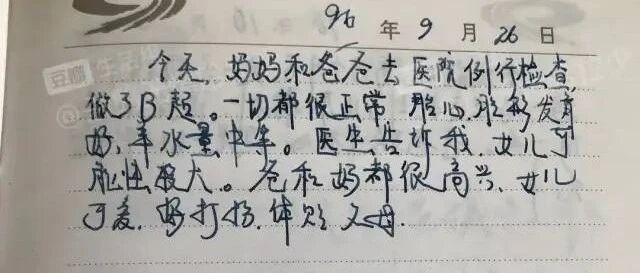 96年9月26日
今天,妈妈和爸爸去医院例行检查,
做了B超。一切都很正常 胎心,胎形发育
好,羊水量中等。医生告诉我,女儿可
能性较大。爸和妈都很高兴,女儿
可爱,好打扮,体贴父母.
豆瓣